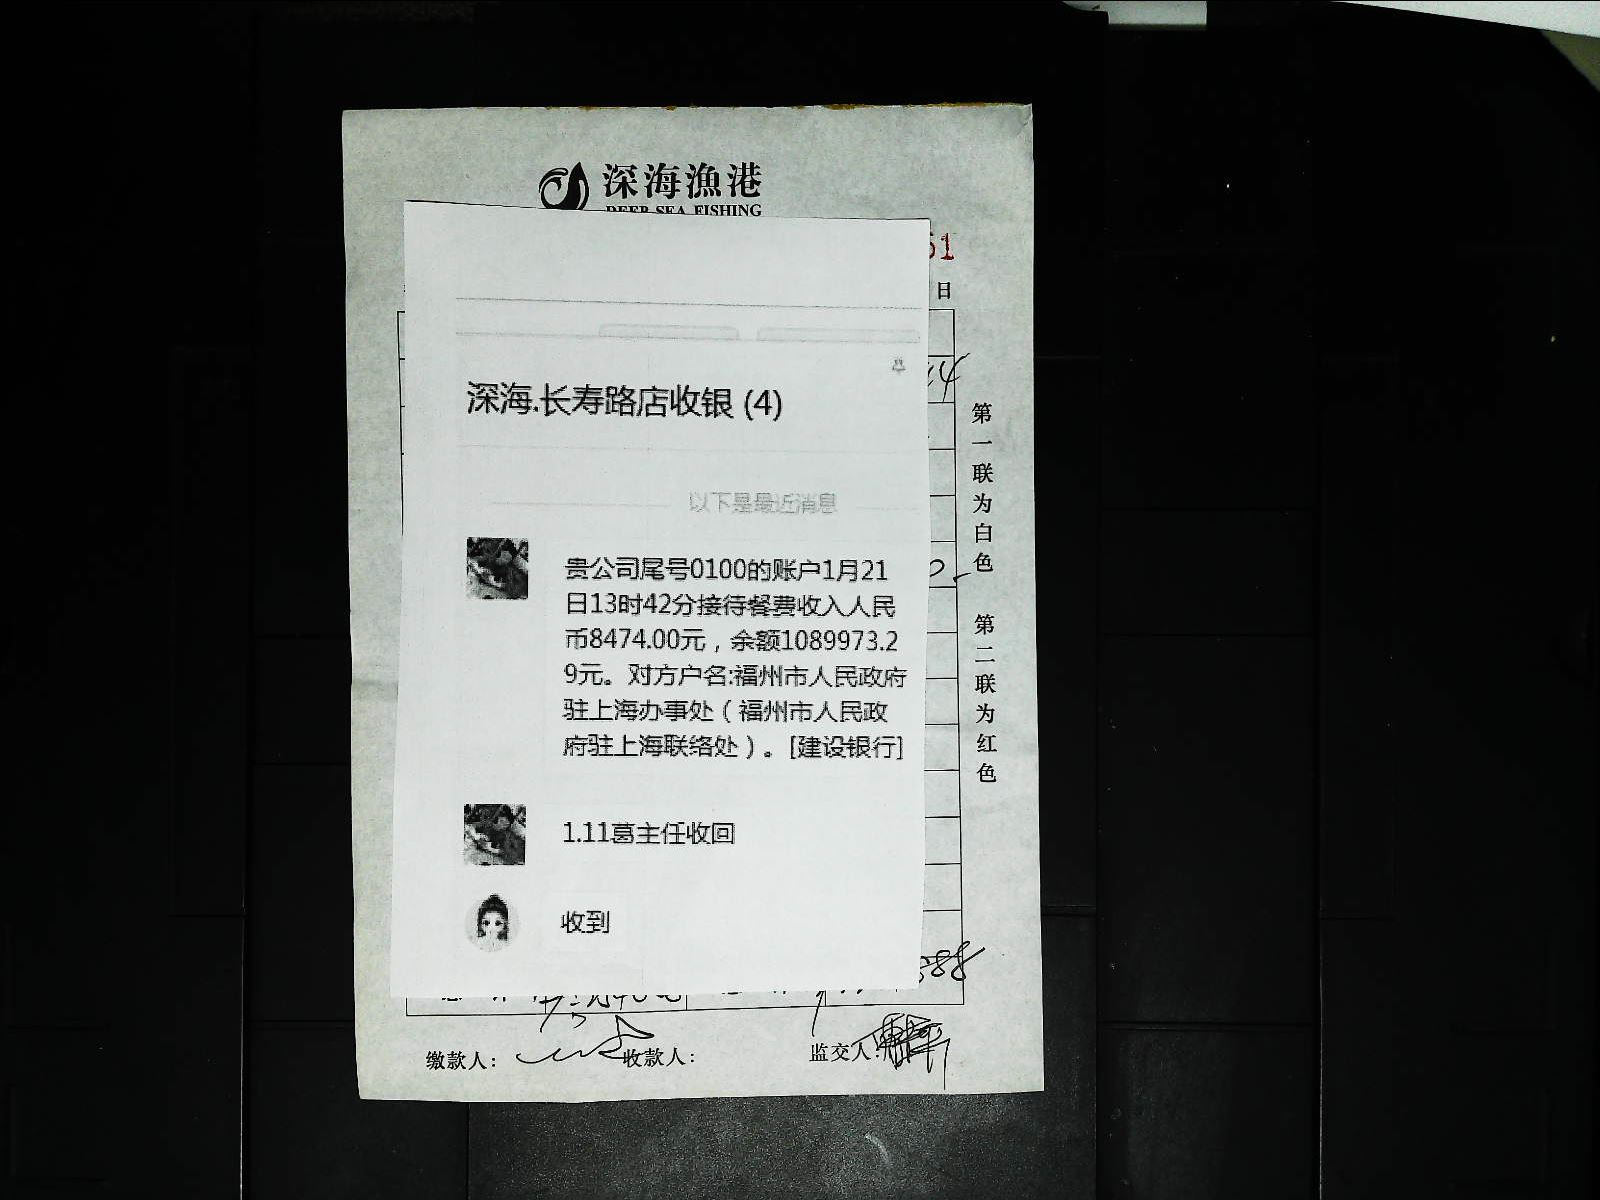 深海漁港
DEEP SEA FISHING
51
日
14
深海.长寿路店收银 (4)
以下是最近消息
贵公司尾号0100的账户1月21
日13时42分接待餐费收入人民
币8474.00元，余额1089973.2
9元。对方户名:福州市人民政府
驻上海办事处（福州市人民政
府驻上海联络处）。[建设银行]
1.11葛主任收回
收到
第一联为白色 第二联为红色
888
缴款人： 收款人： 监交人：